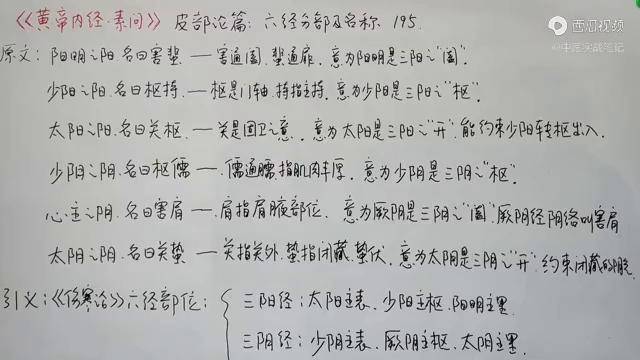 《黄帝内经·素问》 皮部论篇：六经分部及名称 195.
西瓜视频
@中医实战笔记
原文：阳明之阳.名曰害蜚 — 害通阖.蜚通扉.意为阳明是三阳之"阖".
少阳之阳.名曰枢持. — 枢是门轴.持指主持.意为少阳是三阳之"枢".
太阳之阳.名曰关枢 — 关是固卫之意.意为太阳是三阳之"开".能约束少阳转枢出入.
少阴之阴.名曰枢儒 — 儒通臑.指肌肉丰厚.意为少阴是三阴之"枢".
心主之阴.名曰害肩 — 肩指肩腋部位.意为厥阴是三阴之"阖".厥阴经阴络叫害肩
太阴之阴.名曰关蛰 — 关指关外.蛰指闭藏.蛰伏.意为太阴是三阴之"开".约束闭藏的
引义：《伤寒论》六经部位：
三阳经：太阳主表.少阳主枢.阳明主里.
三阴经：少阴主表.厥阴主枢.太阴主里.